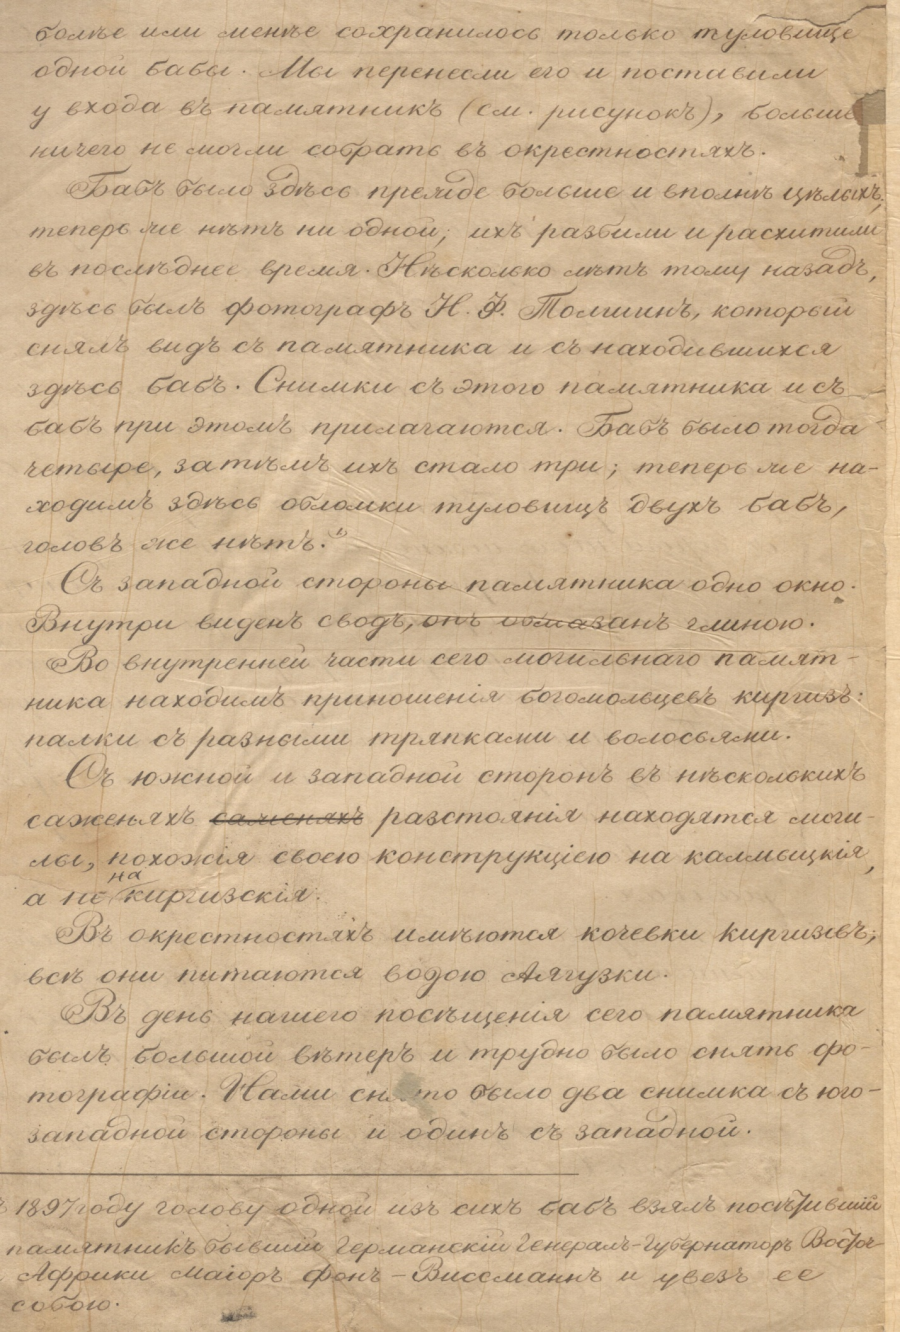 болѣе или менѣе сохранилось только туловище
одной бабы. Мы перенесли его и поставили
у входа въ памятникъ (см. рисунокъ), больше
ничего не могли собрать въ окрестностяхъ.
Бабъ было здѣсь прежде больше и вполнѣ цѣлыхъ,
теперь же нѣтъ ни одной; ихъ разбили и расхитили
въ послѣднее время. Нѣсколько лѣтъ тому назадъ,
здѣсь былъ фотографъ Н. Ф. Толшинъ, который
снялъ видъ съ памятника и съ находившихся
здѣсь бабъ. Снимки съ этого памятника и съ
бабъ при этомъ прилагаются. Бабъ было тогда
четыре, затѣмъ ихъ стало три; теперь же на-
ходимъ здѣсь обломки туловищъ двухъ бабъ,
головъ же нѣтъ.¹⁾
Съ западной стороны памятника одно окно.
Внутри виденъ сводъ, онъ обмазанъ глиною.
Во внутренней части сего могильнаго памят-
ника находимъ приношенія богомольцевъ киргизъ:
палки съ разными тряпками и волосьями.
Съ южной и западной сторонъ въ нѣсколькихъ
саженяхъ саженяхъ разстоянія находятся моги-
лы, похожія своею конструкціею на калмыцкія,
а не на киргизскія.
Въ окрестностяхъ имѣются кочевки киргизовъ;
всѣ они питаются водою Аягузки.
Въ день нашего посѣщенія сего памятника
былъ большой вѣтеръ и трудно было снять фо-
тографіи. Нами снято было два снимка съ юго-
западной стороны и одинъ съ западной.
ъ 1897 году голову одной изъ сихъ бабъ взялъ посѣтившій
памятникъ бывшій Германскій Генералъ-Губернаторъ Восточ-
Африки маіоръ фонъ-Виссманнъ и увезъ ее
собою.